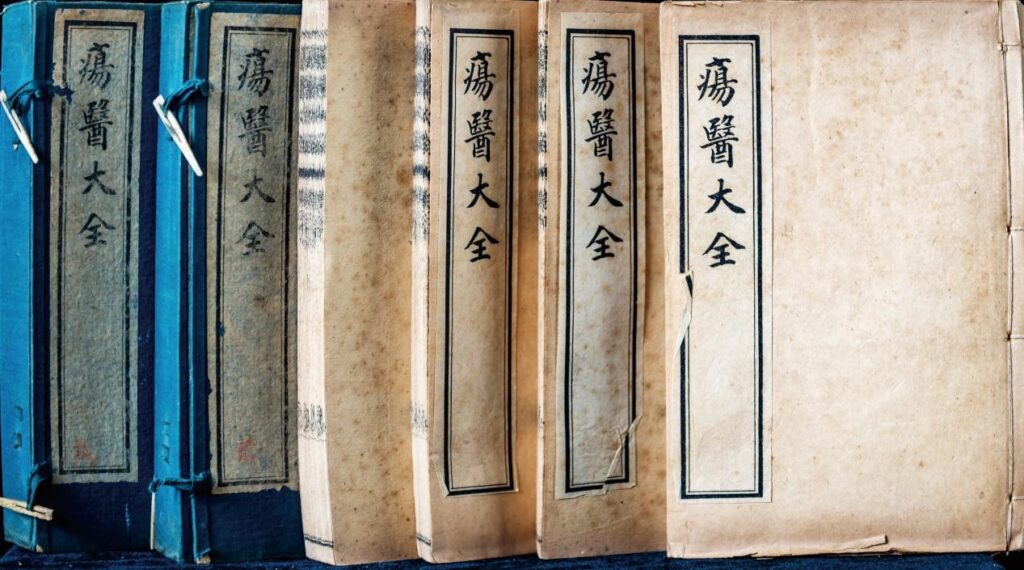 瘍醫大全
瘍醫大全
瘍醫大全
瘍醫大全
瘍醫大全